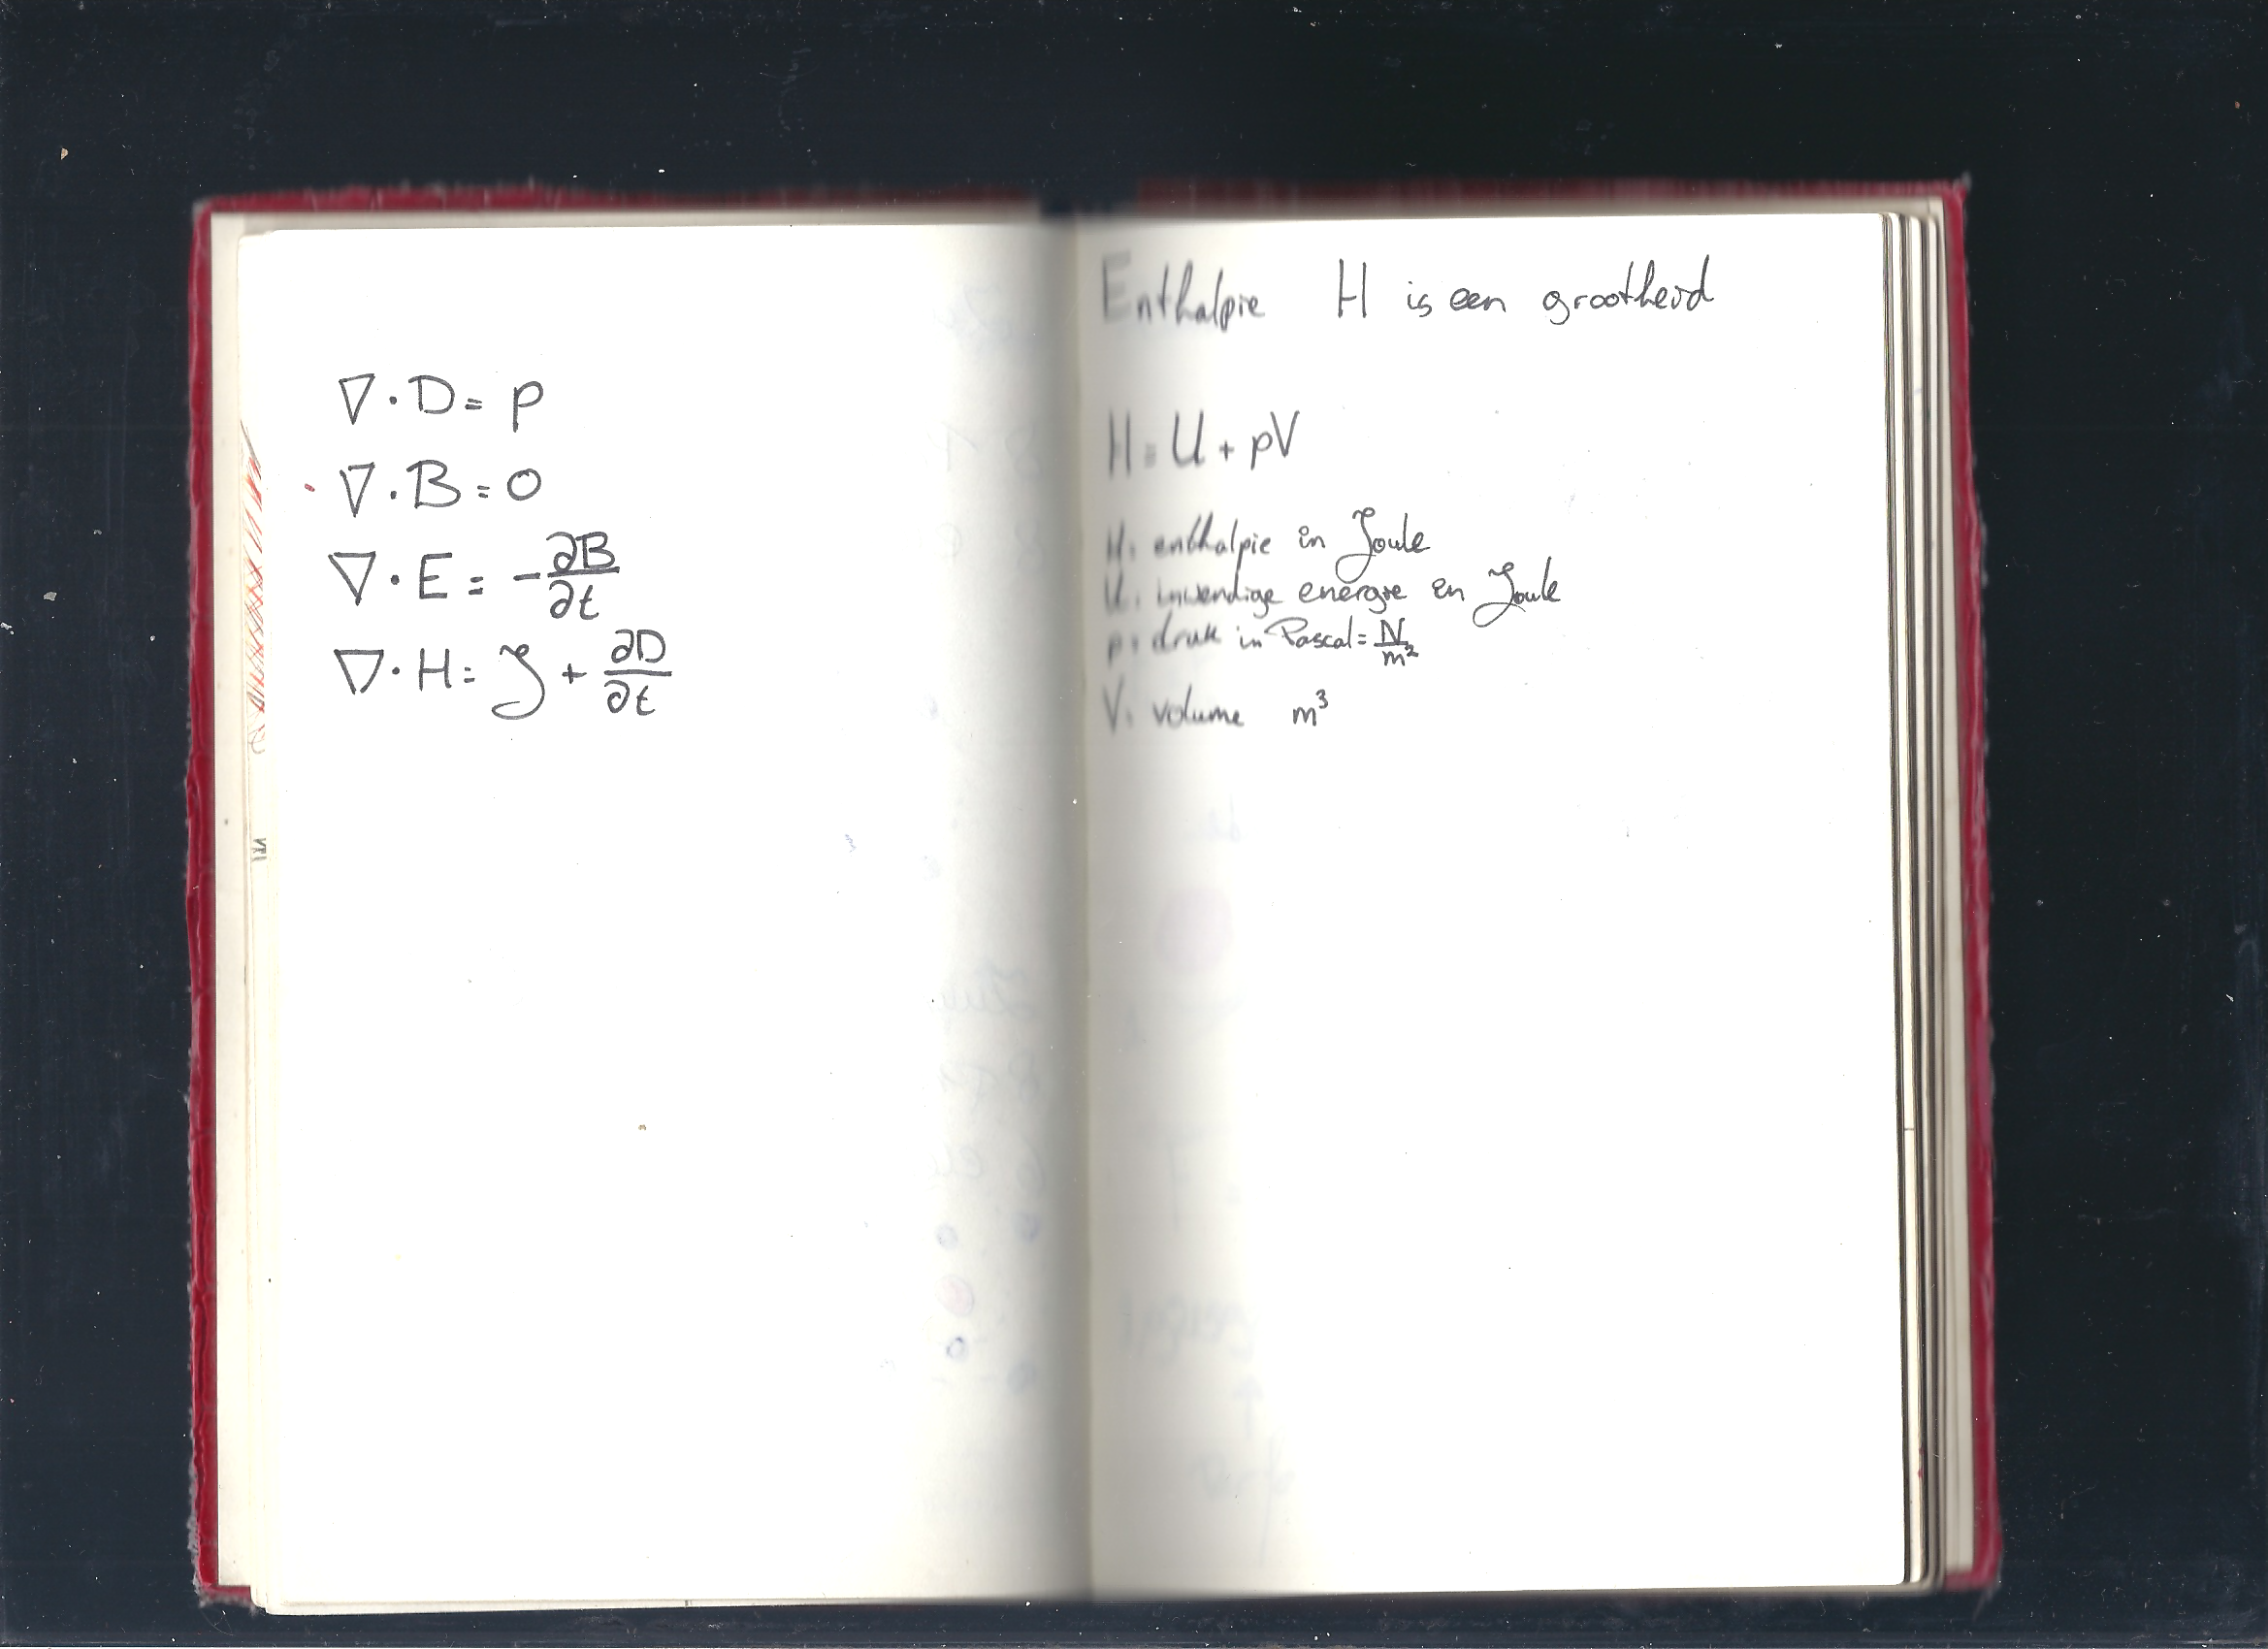 ∇·D = p
∇·B = 0
∇·E = -∂B/∂t
∇·H = J + ∂D/∂t
Enthalpie H is een grootheid
H = U + pV
H: enthalpie in Joule
U: inwendige energie en Joule
p: druk in Pascal = N/m²
V: volume m³